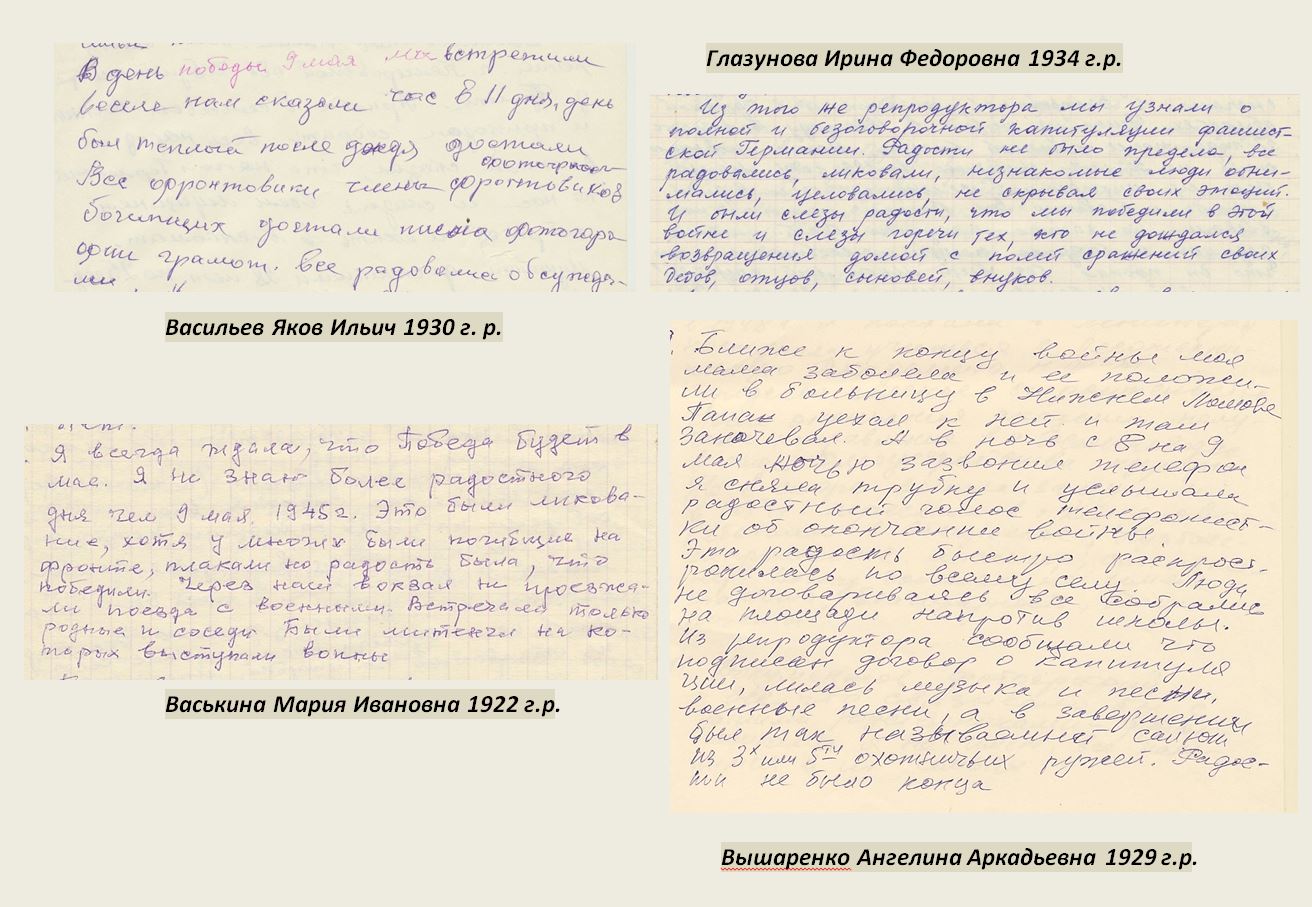 В день победы 9 мая мы встретили
весело нам сказали час в 11 дня, день
был теплый после дождя достали
фотографии
Все фронтовики члены фронтовиков
достали письма фотогра-
фии грамот. Все радовались обсужда-
ли
Васильев Яков Ильич 1930 г. р.
Глазунова Ирина Федоровна 1934 г.р.
Из того же репродуктора мы узнали о
полной и безоговорочной капитуляции фашист-
ской Германии. Радости не было предела, все
радовались, ликовали, незнакомые люди обни-
мались, целовались, не скрывая своих эмоций.
И были слезы радости, что мы победили в этой
войне и слезы горечи тех, кто не дождался
возвращения домой с полей сражений своих
дедов, отцов, сыновей, внуков.
Я всегда ждала, что Победа будет в
мае. Я не знаю более радостного
дня чем 9 мая 1945г. Это были ликова-
ние, хотя у многих были погибшие на
фронте, плакали но радость была, что
победили. Через наш вокзал не проезжа-
ли поезда с военными. Встречала только
родные и соседи. Были митенги на ко-
торых выступали воины
Васькина Мария Ивановна 1922 г.р.
Ближе к концу войны моя
мама заболела и ее положи-
ли в больницу в Нижнем Ломове
Папа уехал к ней и там
заночевал. А в ночь с 8 на 9
мая ночью зазвонил телефон
я сняла трубку и услышала
радостный голос телефонист-
ки об окончании войны.
Эта радость быстро распрост-
ранилась по всему селу. Люди
не договариваясь все собрались
на площади напротив школы.
Из репродуктора сообщали что
подписан договор о капитуля
ции, лилась музыка и песни,
военные песни, а в завершении
был так называемый салют
из 3х или 5ти охотничьих ружей. Радос-
ти не было конца
Вышаренко Ангелина Аркадьевна 1929 г.р.